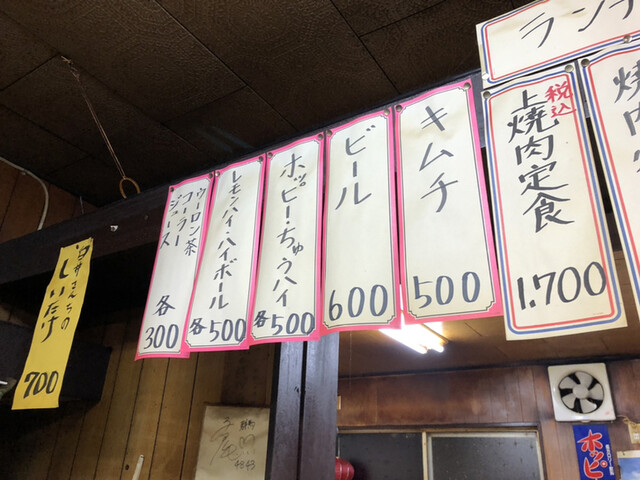 ランチ
税込
上焼肉定食
1.700
焼肉
キムチ
500
ビール
600
ホッピー・ちゅうハイ
各500
レモンハイ ハイボール
各500
ウーロン茶
コーラー
ジュース
各
300
さんちの
しいたけ
700
ホッピ